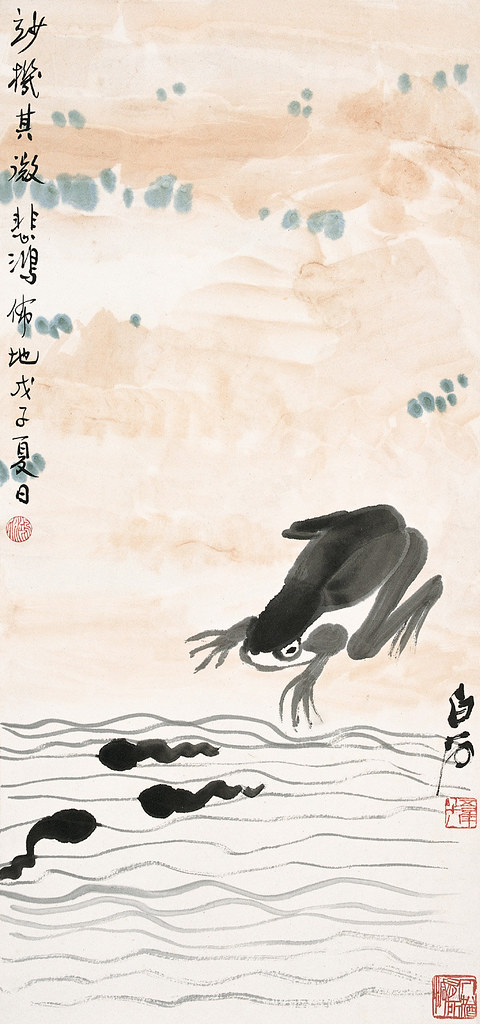 玅機其微 悲鴻佈地 戊子夏日
白石